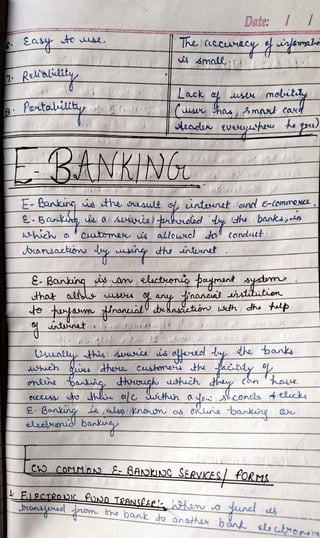 Date: / /
6. Easy to use.
The accuracy of information
is small.
7. Reliability
Lack of user mobility
8. Portability
(user has smart card
reader everywhere he goes)
E-BANKING
E-Banking is the result of internet and e-commerce.
E-Banking is a service provided by the banks, in
which a customer is allowed to conduct
transaction by using the internet.
E-Banking is an electronic payment system
that allow users of any financial institution
to perform financial transaction with the help
of internet.
Usually this service is offered by the banks
which gives there customers the facility of
online banking through which they can have
access to their a/c within a few seconds & clicks
E-Banking is also known as online banking or
electronic banking
COMMON E-BANKING SERVICES/ FORMS
1. ELECTRONIC FUND TRANSFER:- When a fund is
transfered from one bank to another bank electronica